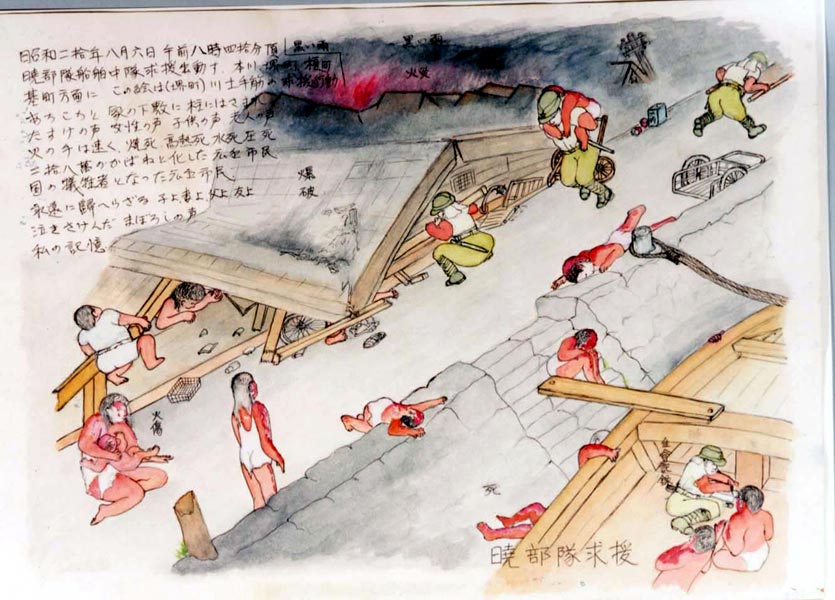 昭和二拾年八月六日午前八時四拾分頃
暁部隊船舶中隊求援出動す、本川 堺町 横町
基町方面に この絵は(堺町)川土手筋の求援活動
あちこちと 家の下敷に 柱にはさまり
たすけの声 女性の声 子供の声 老人の声
火の手は速く、爆死 高熱死 水死 圧死
二拾八萬のかばねと化した 広島市民
国の犠牲者となった広島市民
永遠に歸へらざる 子よ 妻よ 父よ 友よ
泣きさけんだ まぼろしの声
私の記憶
黒い雨
黒い雨
火災
爆破
火傷
死
暁部隊求援